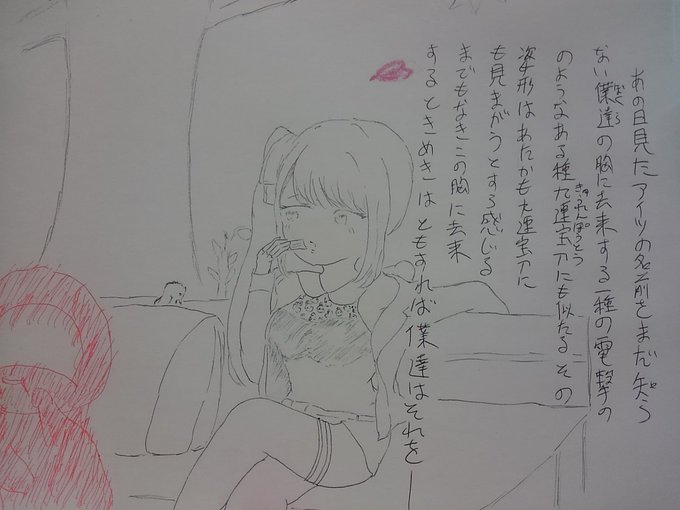 あの日見たアイツの名前をまだ知ら
ない僕達の胸に去来する一種の電撃の
ぼくら
のようなある種九連宝刀にも似たるその
きゅうれんぽうとう
姿形はあたかも連宝刀に
も見まがうとする感じる
までもなきこの胸に去来
するときめきはともすれば僕達はそれを―